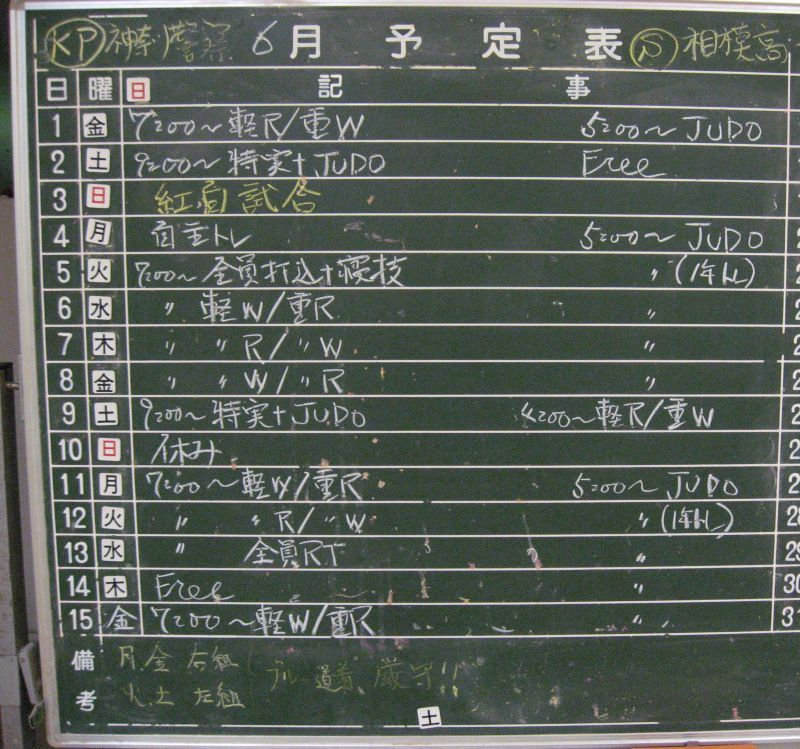 KP 神奈川警察 6月予定表 S 相模高
日 曜 日 記事
1 金 7:00～軽R/重W 5:00～JUDO
2 土 9:00～特実+JUDO Free
3 日 紅白試合
4 月 自主トレ 5:00～JUDO 2
5 火 7:00～全員打込+寝技 〃(1年トレ) 2
6 水 〃 軽W/重R 〃 2
7 木 〃 〃R/〃W 〃 2
8 金 〃 〃W/〃R 〃 2
9 土 9:00～特実+JUDO 4:00～軽R/重W 2
10 日 休み 2
11 月 7:00～軽W/重R 5:00～JUDO 2
12 火 〃 〃R/〃W 〃(1年トレ) 28
13 水 〃 全員RT 〃 29
14 木 Free 〃 30
15 金 7:00～軽W/重R 〃 31
備考 月.金 右組
火.土 左組
ブルー道着、厳守!!
土